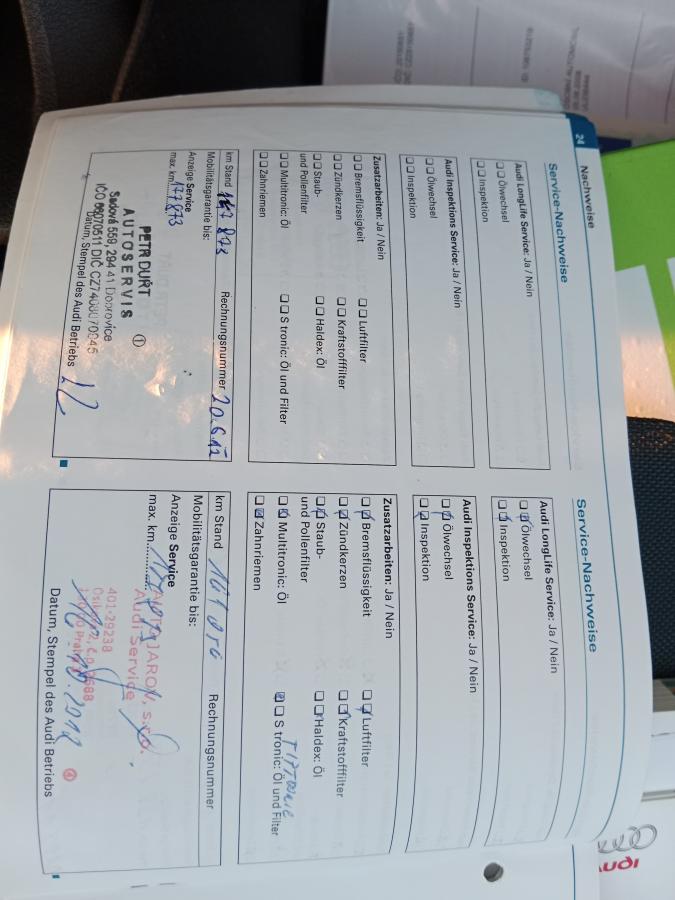 24 Nachweise
Service-Nachweise
Audi LongLife Service: Ja / Nein
Ölwechsel
Inspektion
Audi Inspektions Service: Ja / Nein
Ölwechsel
Inspektion
Zusatzarbeiten: Ja / Nein
Bremsflüssigkeit Luftfilter
Zündkerzen Kraftstofffilter
Staub- Haldex: Öl
und Pollenfilter
Multitronic: Öl S tronic: Öl und Filter
Zahnriemen
km Stand Rechnungsnummer 20.6.12
Mobilitätsgarantie bis:
Anzeige Service
max. km 177873
PETR DURT
AUTOSERVIS
Sadová 559, 294 41 Dobrovice
Datum, Stempel des Audi Betriebs
Service-Nachweise
Audi LongLife Service: Ja / Nein
Ölwechsel
Inspektion
Audi Inspektions Service: Ja / Nein
Ölwechsel
Inspektion
Zusatzarbeiten: Ja / Nein
Bremsflüssigkeit Luftfilter
Zündkerzen Kraftstofffilter
Staub- Haldex: Öl
und Pollenfilter
Multitronic: Öl S tronic: Öl und Filter
Zahnriemen
km Stand Rechnungsnummer
Mobilitätsgarantie bis:
Anzeige Service
max. km
JAROV, s.r.o.
Audi Service
401-29238
Datum, Stempel des Audi Betriebs
Audi